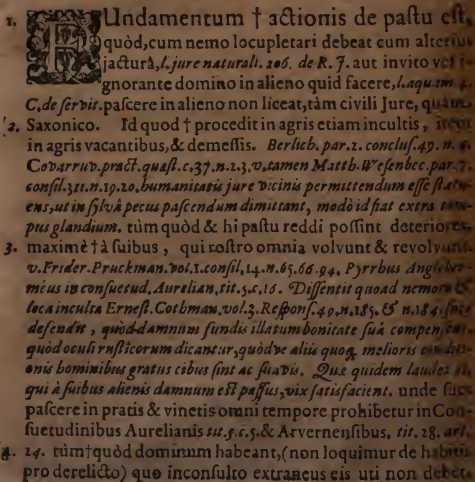 1. FUndamentum † actionis de pastu est,
quòd, cum nemo locupletari debeat cum alterius
jacturâ, l. jure naturali. 206. de R. J. aut invito vel i-
gnorante domino in alieno quid facere, l. aquam.
C. de servit. pascere in alieno non liceat, tàm civili Jure, quàm
2. Saxonico. Id quod † procedit in agris etiam incultis, item
in agris vacantibus, & demessis. Berlich. par. 2. conclus. 49. n.
Covarruv. pract. quæst. c. 37. n. 2. 3. v. tamen Matth. Wesenbec. par. 7.
consil. 311. n. 19. 20. humanitatis jure vicinis permittendum esse statu-
ens, ut in sylvâ pecus pascendum dimittant, modò id fiat extra tem-
pus glandium. tùm quòd & hi pastu reddi possint deteriores,
3. maximè † à suibus, qui rostro omnia volvunt & revolvunt.
v. Frider. Pruckman. vol. 1. consil. 14. n. 65. 66. 94. Pyrrhus Angleber-
meus in consuetud. Aurelian. tit. 5. c. 16. Dissentit quoad nemora &
loca inculta Ernest. Cothman. vol. 3. Respons. 49. n. 185. & n. 184. sues
defendit, quòd damnum fundis illatum bonitate suâ compensent,
quòd oculi rusticorum dicantur, quòdve aliis quoq; melioris conditi-
onis hominibus gratus cibus sint ac suavis. Quæ quidem laudes ei,
qui à suibus alienis damnum est passus, vix satisfacient. unde sues
pascere in pratis & vinetis omni tempore prohibetur in Con-
suetudinibus Aurelianis tit. 5. c. 5. & Arvernensibus, tit. 28. art.
4. 24. tùm † quòd dominum habeant, (non loquimur de habitis
pro derelicto) quo inconsulto extraneus eis uti non debet.